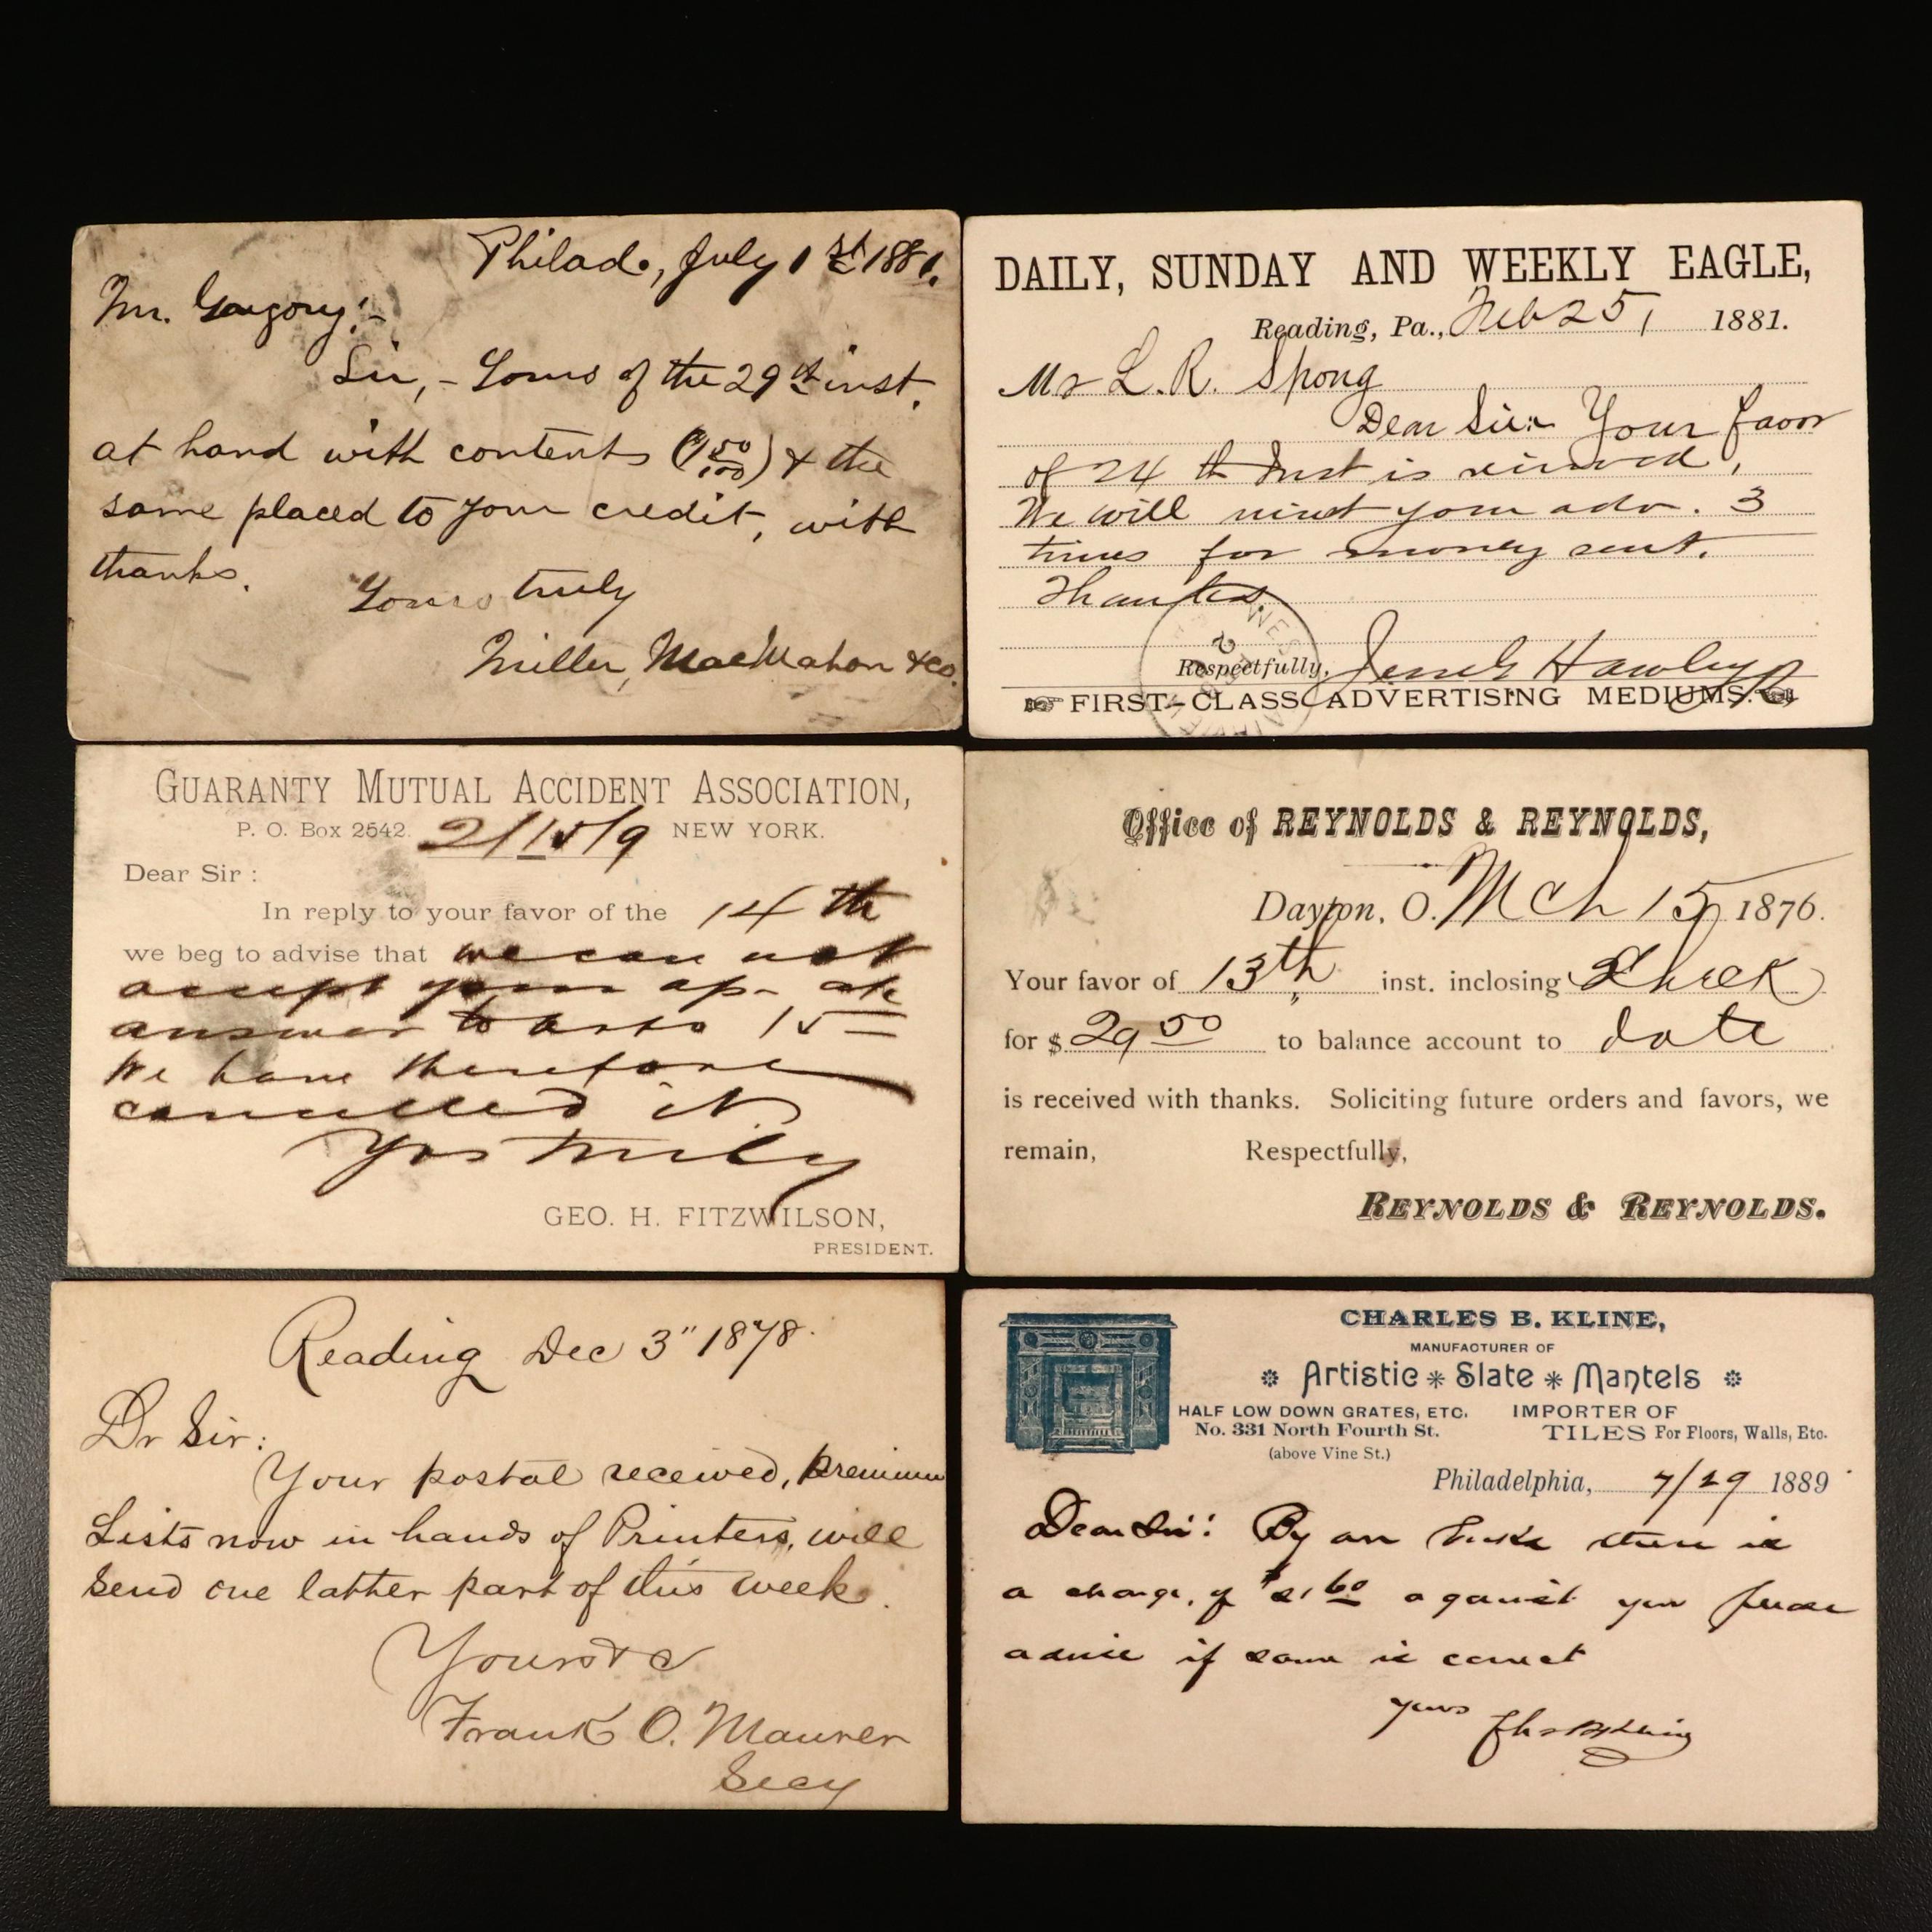 Philad., July 1st 1881.
Mr. Gregory:-
Sir, - Yours of the 29th inst.
at hand with contents (1 50/100) & the
same placed to your credit, with
thanks.
Yours truly
Miller, MacMahon & Co.
DAILY, SUNDAY AND WEEKLY EAGLE,
Reading, Pa., Feb 25, 1881.
Mr L. R. Spong
Dear Sir: Your favor
of 24 th Inst is received,
We will insert your adv. 3
times for money sent.
Thanks.
Respectfully, Hawley
FIRST-CLASS ADVERTISING MEDIUMS.
GUARANTY MUTUAL ACCIDENT ASSOCIATION,
P. O. Box 2542. 2/15/9 NEW YORK.
Dear Sir :
In reply to your favor of the 14 th
we beg to advise that we can not
accept your ap-
answer to 15
We have therefore
cancelled it.
Yrs truly
GEO. H. FITZWILSON,
PRESIDENT.
Office of REYNOLDS & REYNOLDS,
Dayton, O. Mch 15 1876.
Your favor of 13th inst. inclosing Check
for $ 29 50 to balance account to date
is received with thanks. Soliciting future orders and favors, we
remain, Respectfully,
REYNOLDS & REYNOLDS.
Reading Dec 3" 1878.
Dr Sir:
Your postal received, Premium
Lists now in hands of Printers, will
send one latter part of this week.
Yours &c
Frank O. Maurer
Secy
CHARLES B. KLINE,
MANUFACTURER OF
Artistic * Slate * Mantels
HALF LOW DOWN GRATES, ETC. IMPORTER OF
No. 331 North Fourth St. TILES For Floors, Walls, Etc.
(above Vine St.)
Philadelphia, 7/29 1889
Dear Sir: By our books there is
a charge of 60 against you please
advise if same is correct
yours Chas B Kline